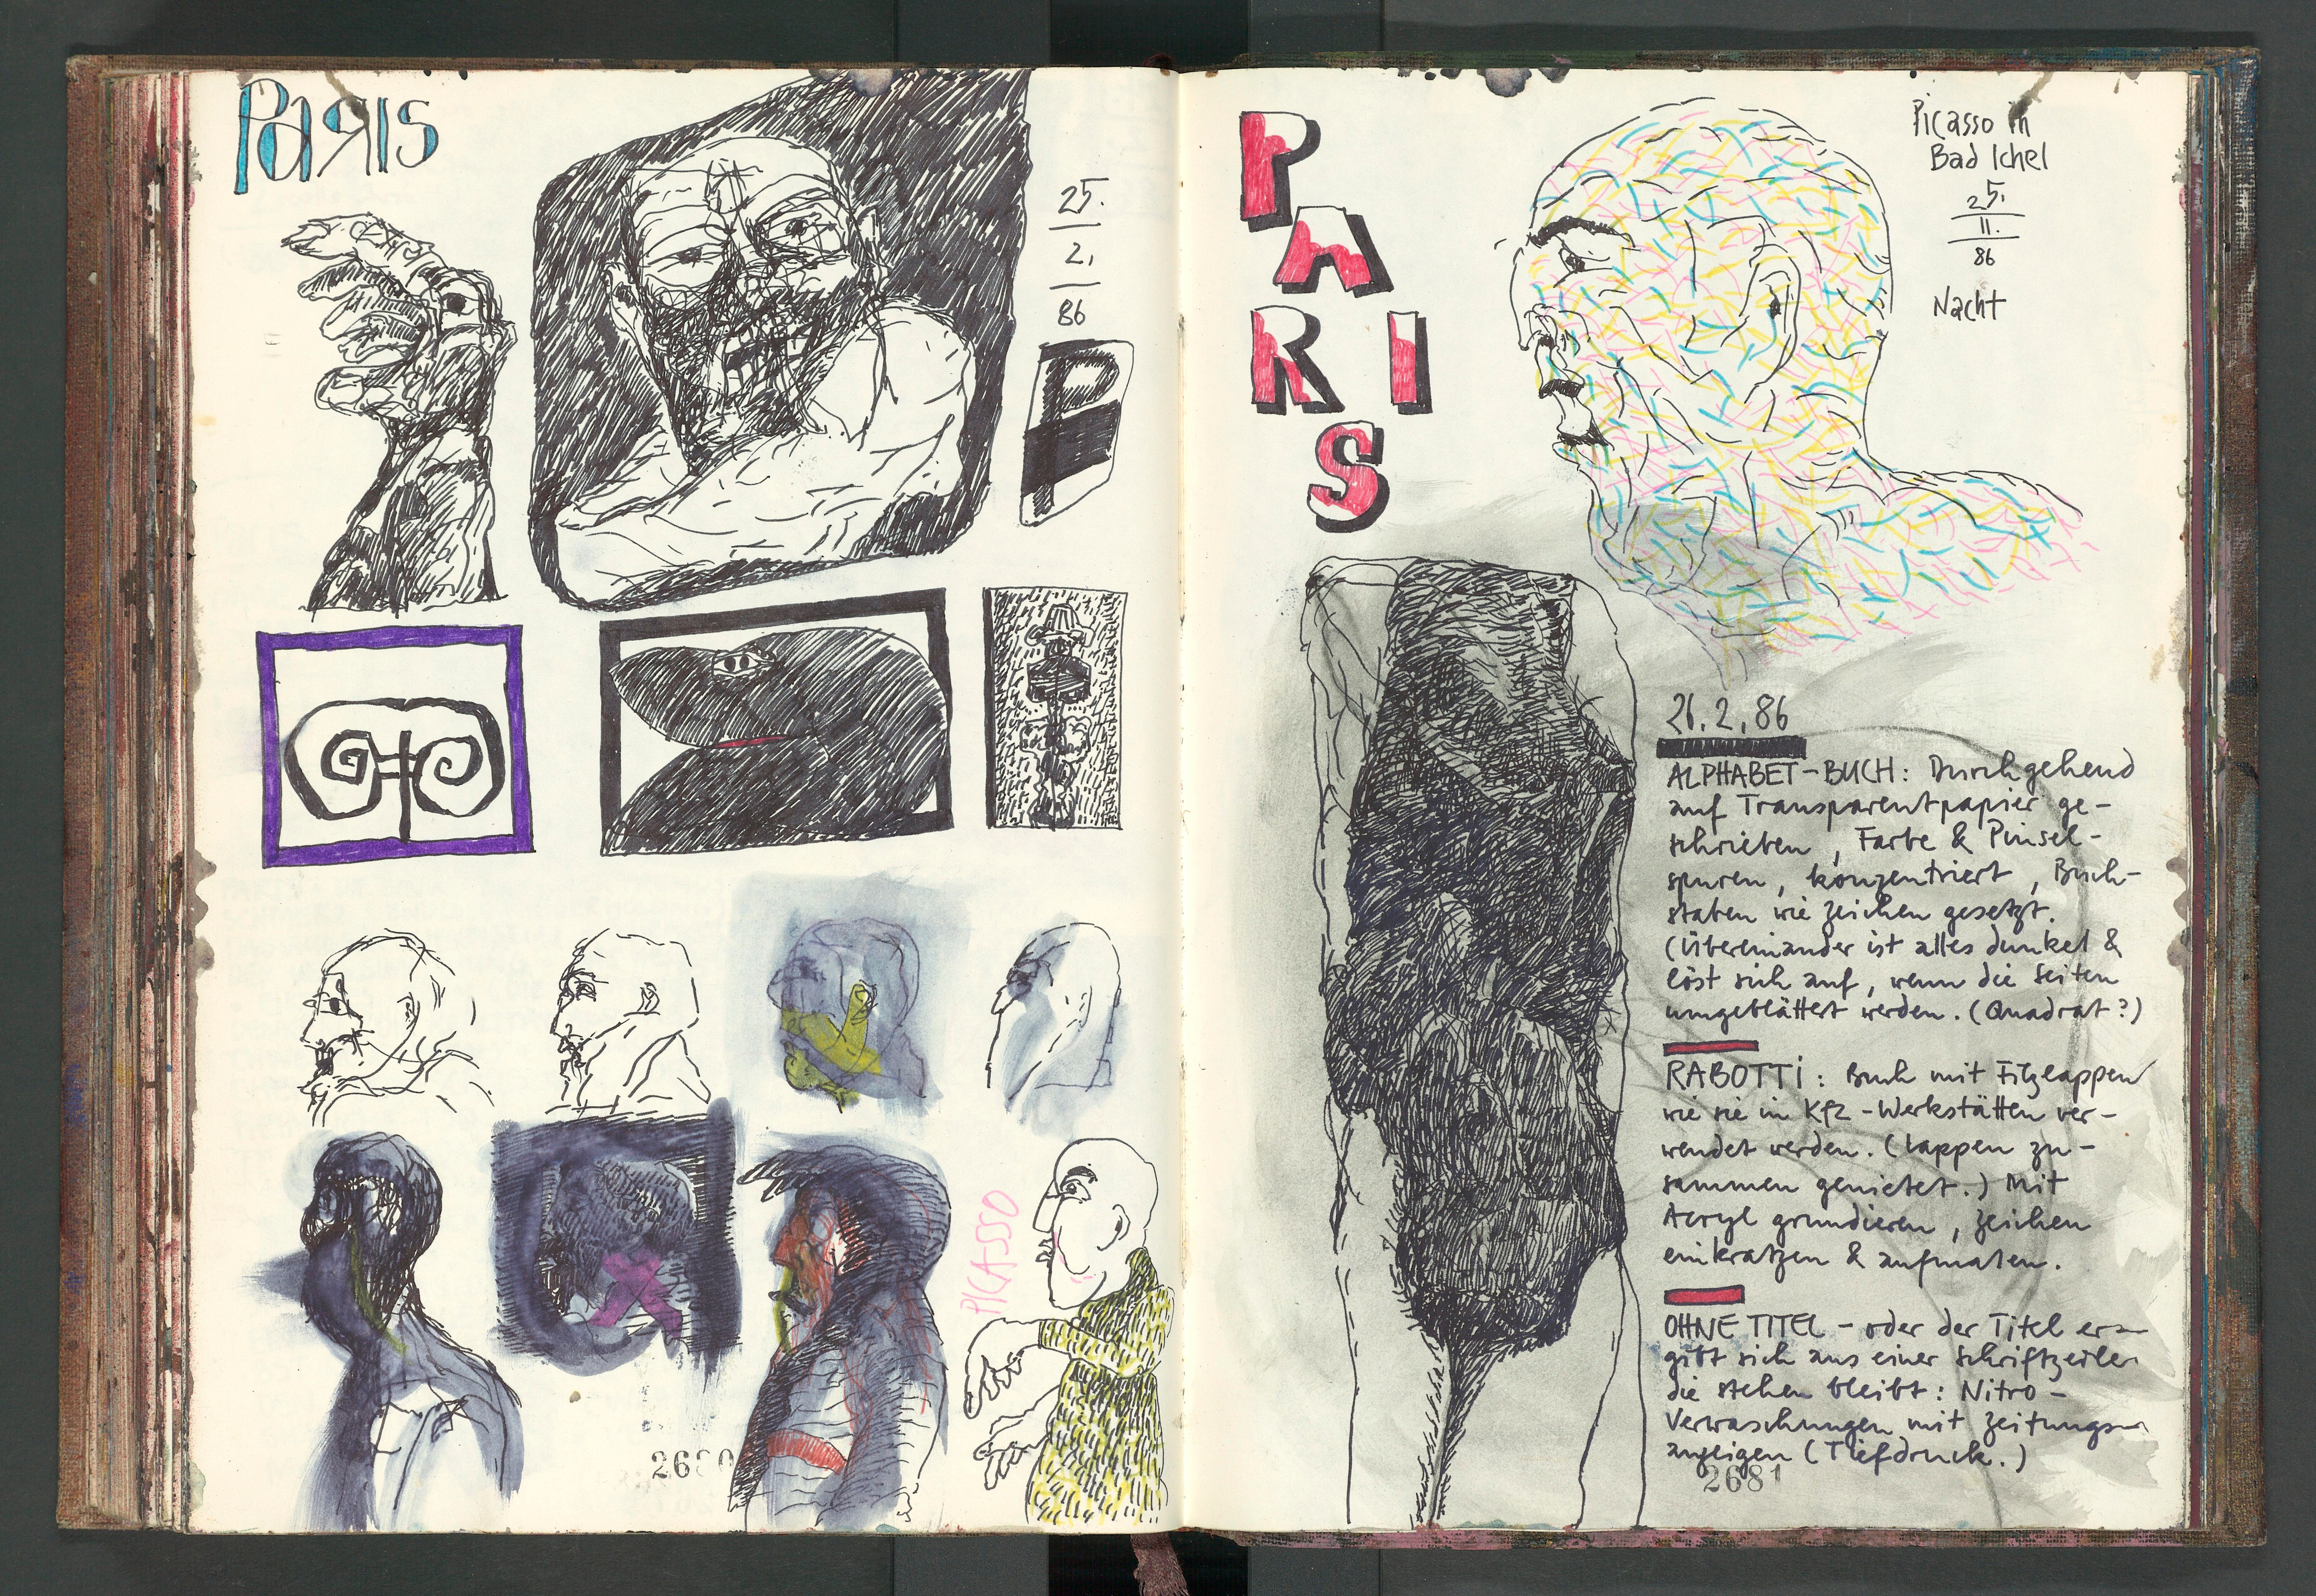 PaRIS
25.
2.
86
P
PICASSO
2680
P
A
R I
S
Picasso in
Bad Ichel
25.
11.
86
Nacht
26.2.86
ALPHABET-BUCH: Durchgehend
auf Transparentpapier ge-
schrieben, Farbe & Pinsel-
spuren, konzentriert, Buch-
staben wie Zeichen gesetzt.
(Übereinander ist alles dunkel &
löst sich auf, wenn die Seiten
umgeblättert werden. (Quadrat?)
RABOTTI: Buch mit Filzlappen
wie sie in Kfz-Werkstätten ver-
wendet werden. (Lappen zu-
sammen genietet.) Mit
Acryl grundieren, Zeichen
einkratzen & aufmalen.
OHNE TITEL - oder der Titel er-
gibt sich aus einer Schriftzeile
die stehen bleibt: Nitro-
Verwaschungen mit Zeitungs-
anzeigen (Tiefdruck.)
2681